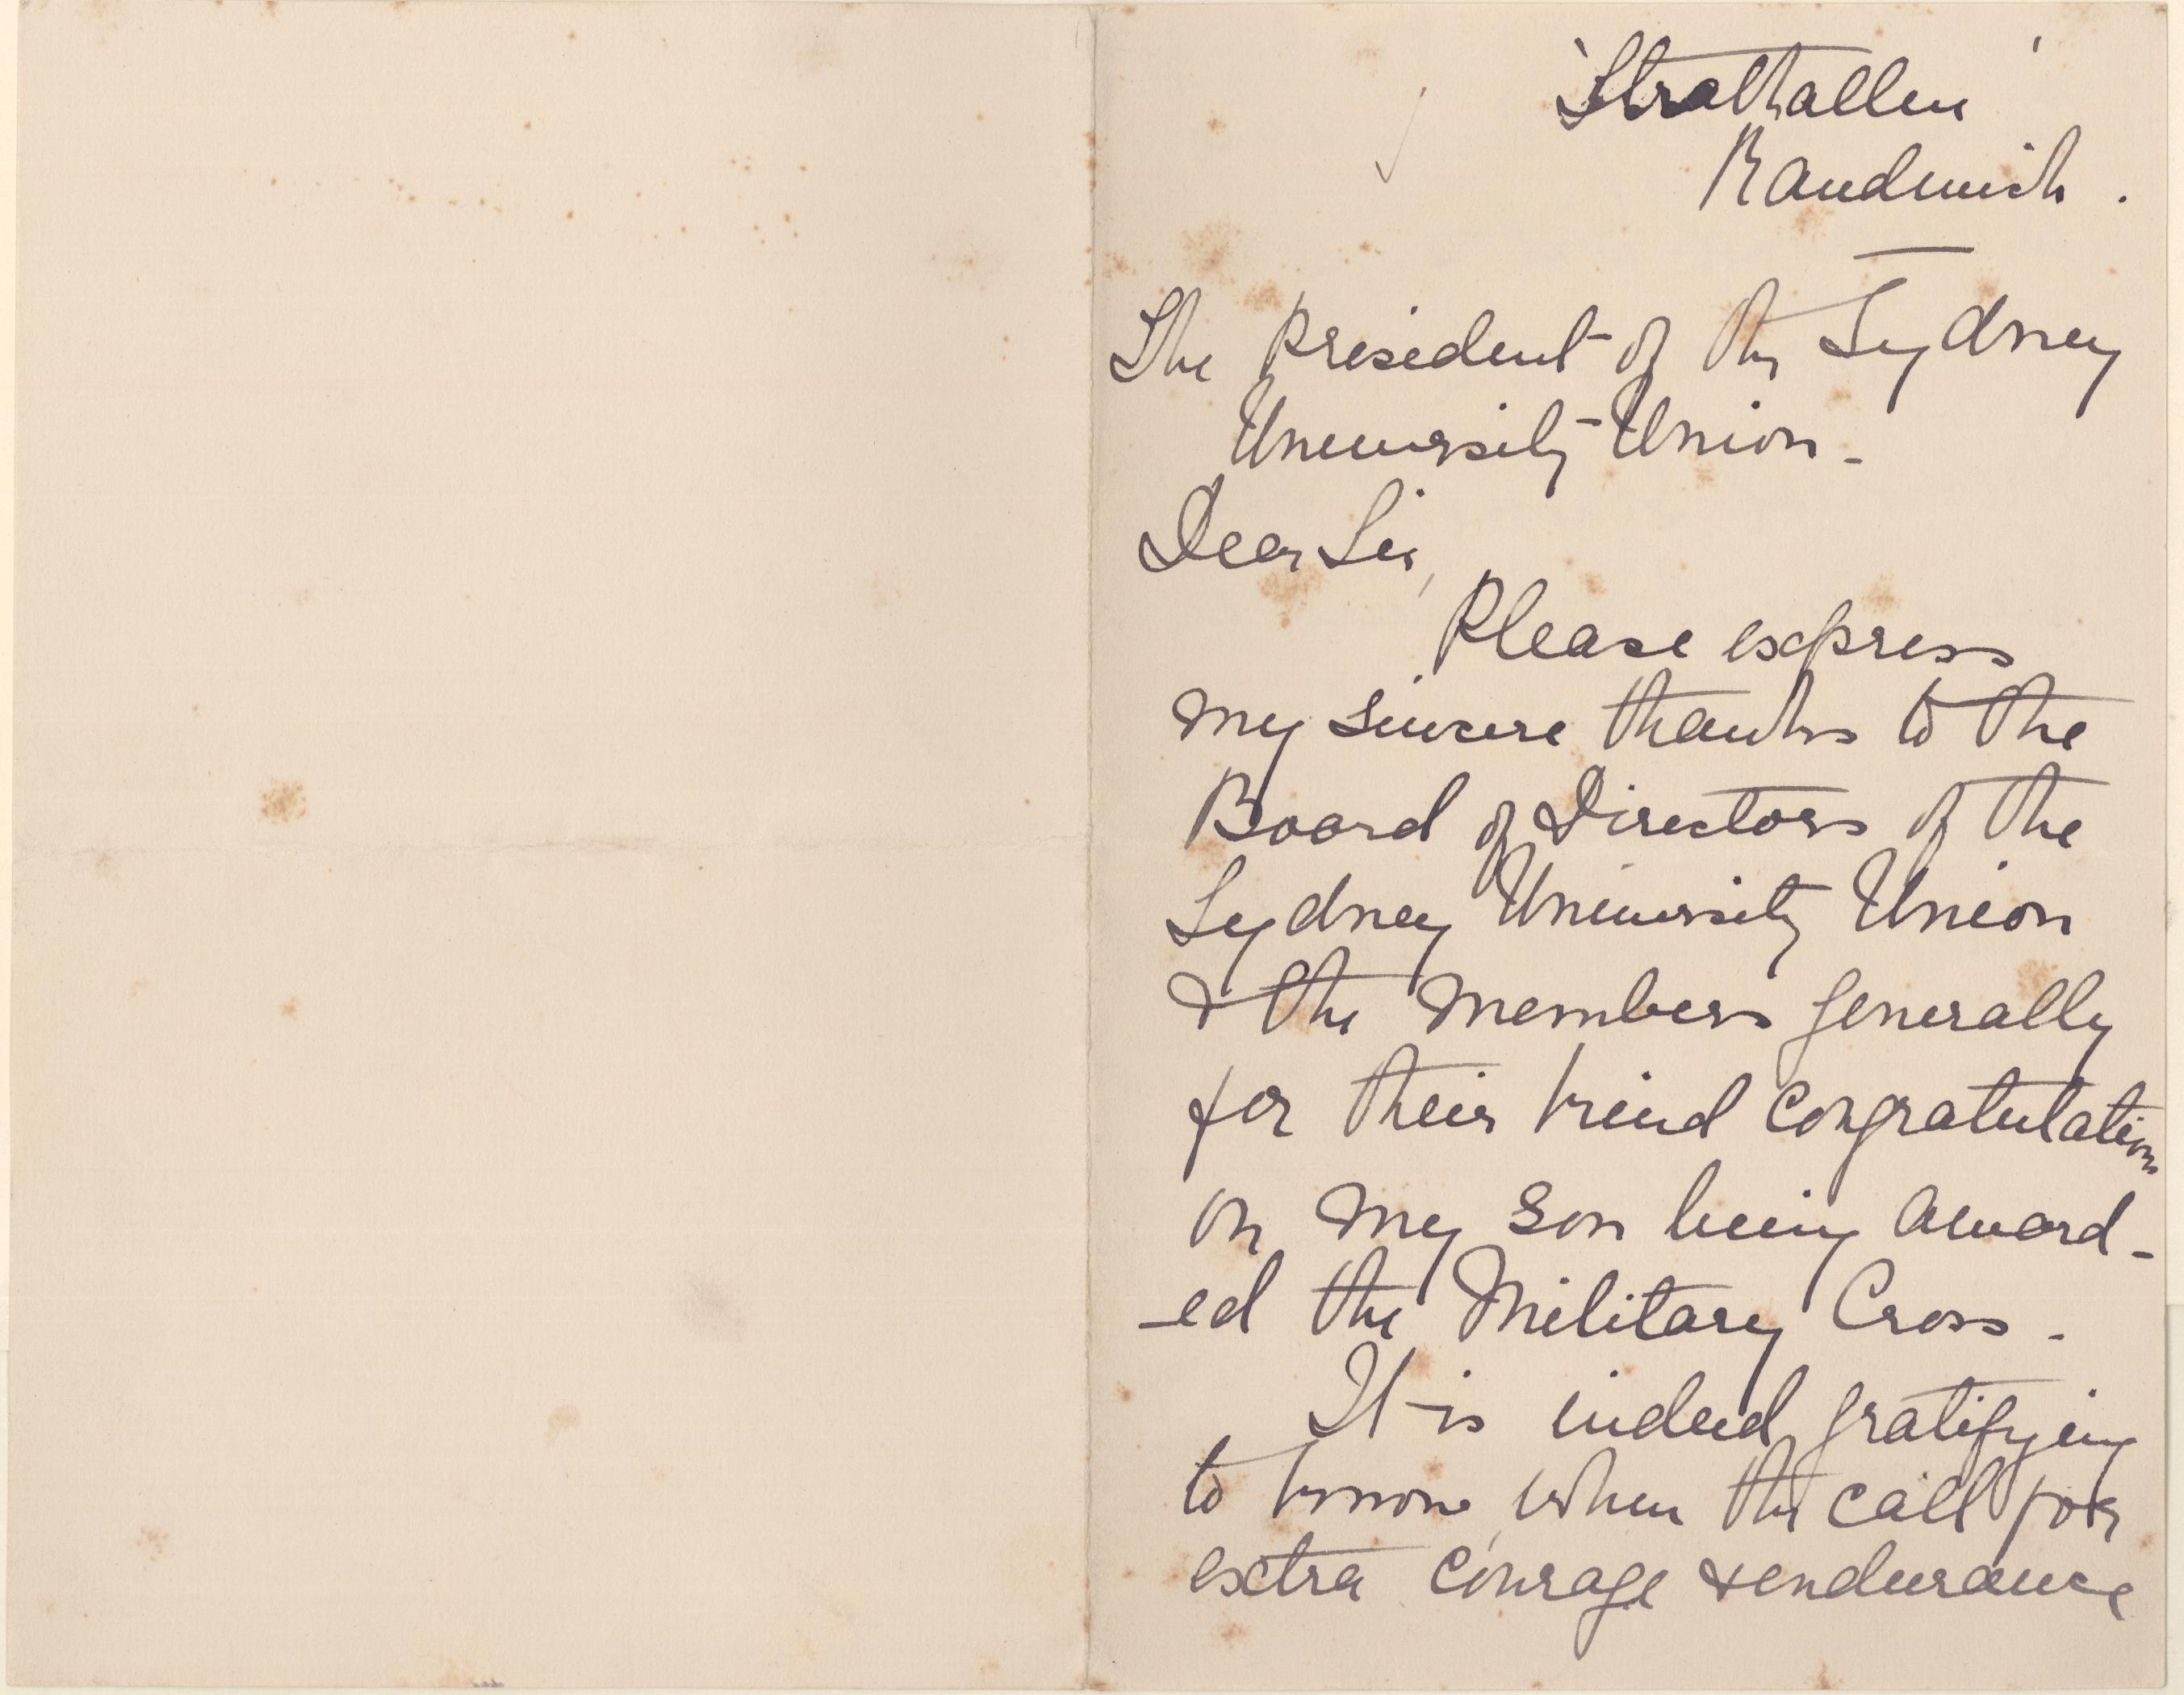 'Strathallen'
Randwick.
The President of the Sydney
University Union -
Dear Sir,
Please express
my sincere thanks to the
Board of Directors of the
Sydney University Union
& the members generally
for their kind congratulations
on my son being award-
-ed the Military Cross.
It is indeed gratifying
to know, when the call for
extra courage & endurance